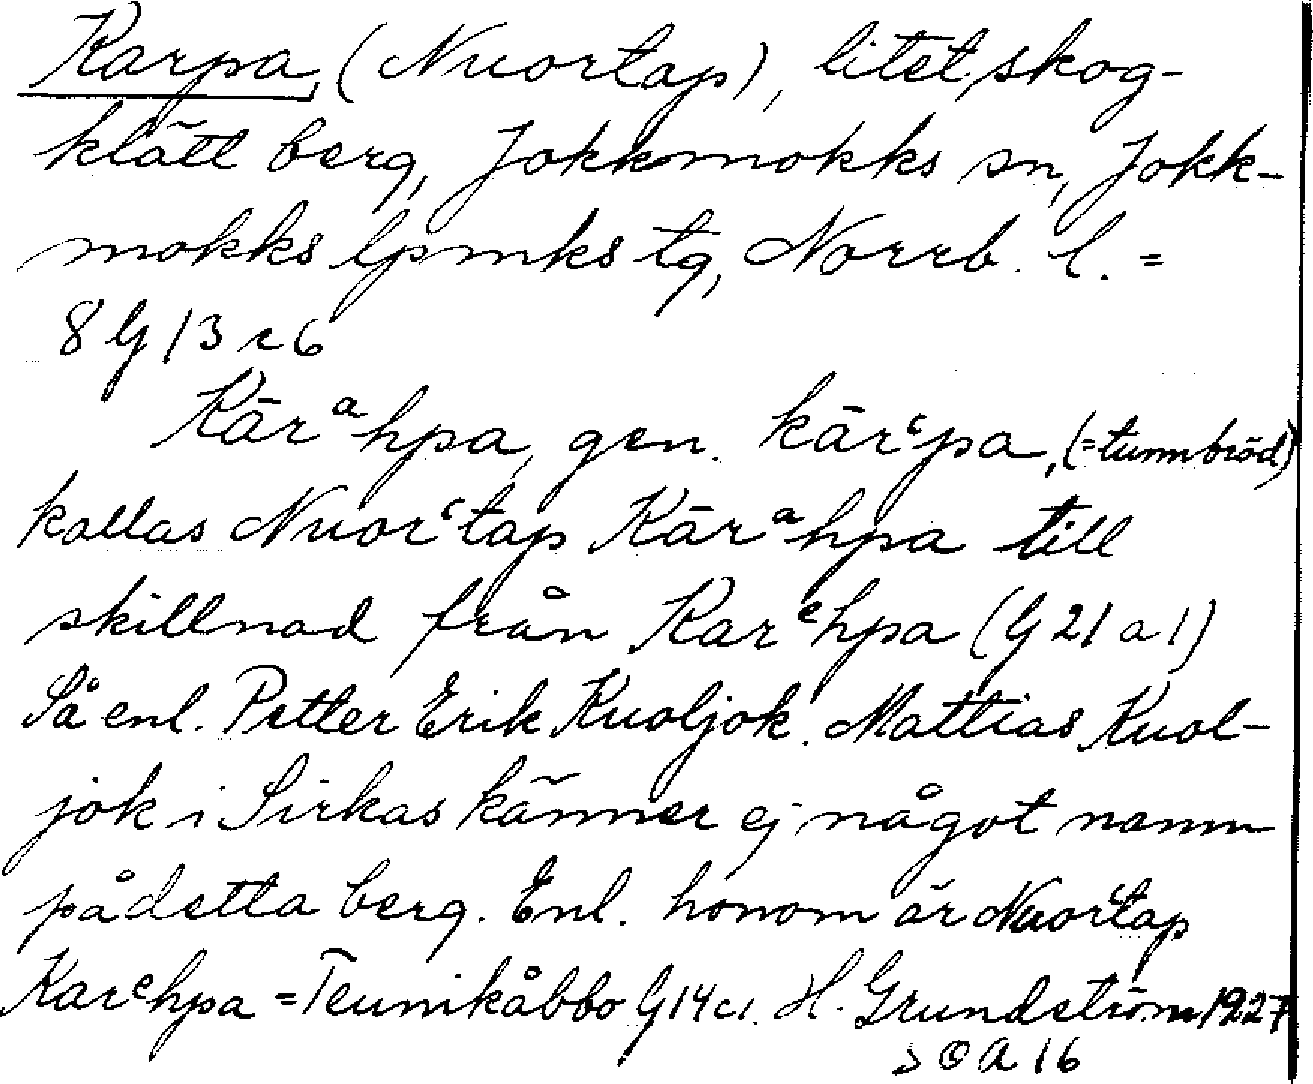 Karpa, (Nuortap), litet skog-
klätt berg, Jokkmokks sn, Jokk-
mokks lpmks tg, Norrb. l. =
8 G 13 c 6
Kārᵃhpa, gen. kārʿpa, (= tunnbröd)
kallas Nuorʿtap Kārᵃhpa till
skillnad från Karᵉhpa (G 21 a 1)
Så enl. Petter Erik Kuoljok. Mattias Kuol-
jok i Sirkas känner ej något namn
på detta berg. Enl. honom är Nuorʿtap
Karᵉhpa = Teunikåbbo G 14 c 1. H. Grundström 1927
S O A 16